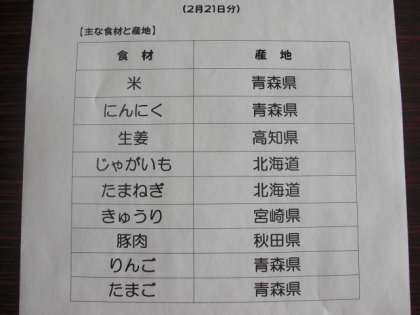 (2月21日分)
【主な食材と産地】
食 材 産 地
米 青森県
にんにく 青森県
生姜 高知県
じゃがいも 北海道
たまねぎ 北海道
きゅうり 宮崎県
豚肉 秋田県
りんご 青森県
たまご 青森県